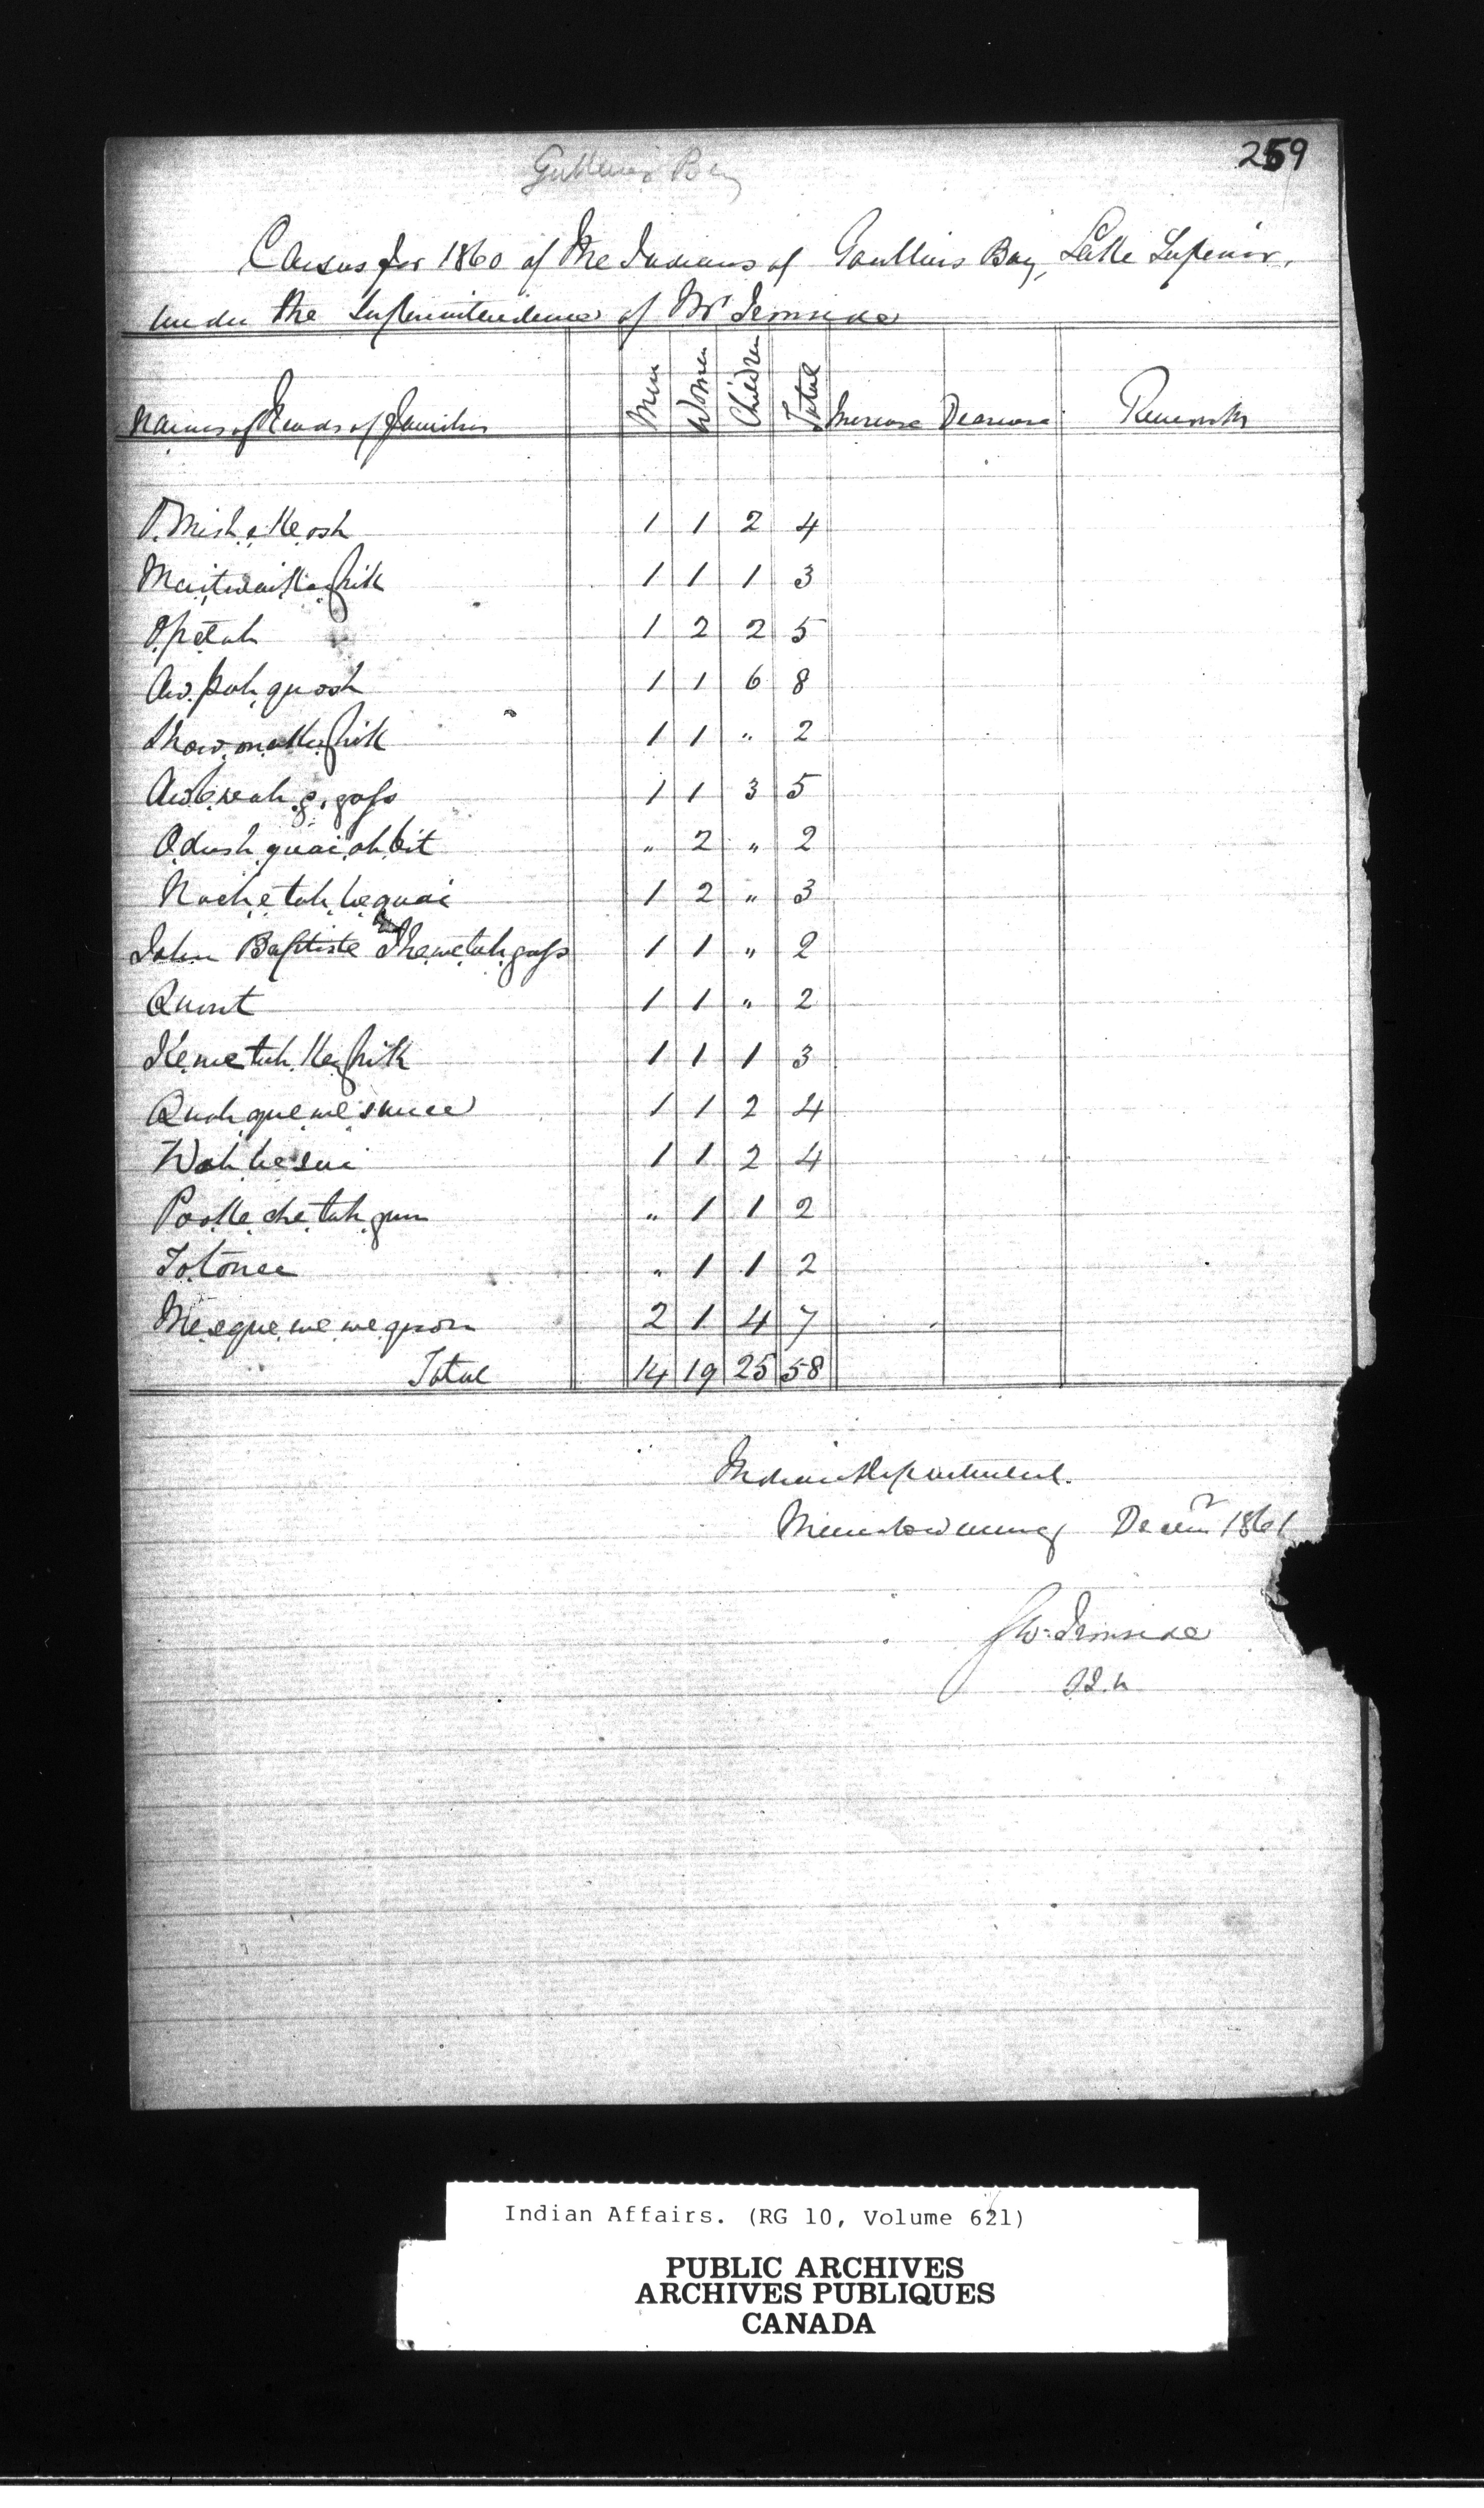 259
Goulais Bay
Census for 1860 of the Indians of Goullais Bay, Lake Superior,
under the Superintendence of Mr Ironside
Names of Heads of Families Men Women Children Total Increase Decrease Remarks
O.mish.e.ke.osh 1 1 2 4
Maitwaikezhik 1 1 1 3
O.petah 1 2 2 5
Aw.pah.quosh 1 1 6 8
Show.on.a.ke.zhik 1 1 " 2
1 1 3 5
O.dush.quai.ah.bit " 2 " 2
Noche.tah.be.quai 1 2 " 3
John Baptiste 1 1 " 2
1 1 " 2
Ke.we.tah.ke.zhik 1 1 1 3
1 1 2 4
Wah.be.sai 1 1 2 4
Po.ke.che.tah.gun " 1 1 2
" 1 1 2
2 1 4 7
Total 14 19 25 58
Indian Department.
Manitowaning Decemr 1861
G W. Ironside
Indian Affairs. (RG 10, Volume 621)
PUBLIC ARCHIVES
ARCHIVES PUBLIQUES
CANADA